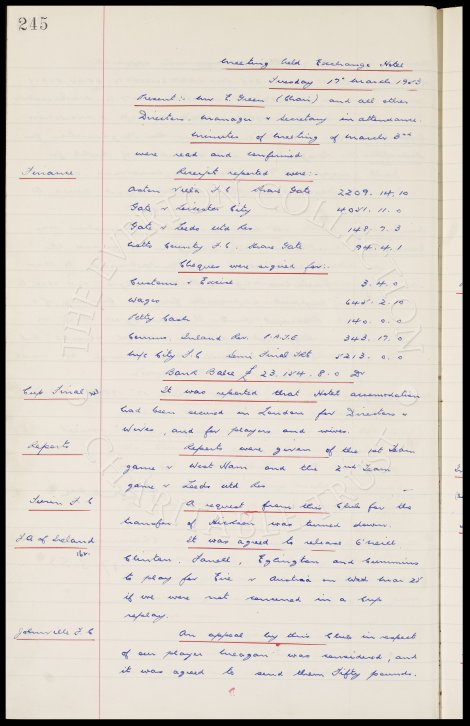 245
Meeting held Exchange Hotel
Tuesday 17th March 1953
Present:- Mr E. Green (Chair) and all other
Directors. Manager & Secretary in attendance.
Minutes of Meeting of March 3rd
were read and confirmed
Finance
Receipts reported were:-
Aston Villa F.C. Share Gate 2209. 14. 10
Gate v Leicester City 4051. 11. 0
Gate v Leeds Utd Res 148. 7. 3
Notts County F.C. Share Gate 94. 4. 1
Cheques were signed for:-
Customs & Excise 3. 4. 0
Wages 645. 2. 10
Petty Cash 140. 0. 0
Inland Rev. P.A.Y.E 343. 17. 0
M/c City F.C Semi Final Tkt 5213. 0. 0
Bank Balce £ 23,154. 8. 0 Dr
Cup Final
It was reported that Hotel accomodation
had been secured in London for Directors &
Wives, and for players and wives.
Reports
Reports were given of the 1st Team
game v West Ham and the 2nd Team
game v Leeds Utd Res
F.C
A request from this Club for the
transfer of Hickson was turned down.
F.A of Ireland
It was agreed to release O'Neill
Clinton, Farrell, Eglington and Cummins
to play for Eire v Austria on Wed Mar 25
if we were not concerned in a Cup
replay.
Johnville F.C
An appeal by this Club in respect
of our player Meagan was considered, and
it was agreed to send them Fifty pounds.
THE EVERTON COLLECTION
CHARITABLE TRUST